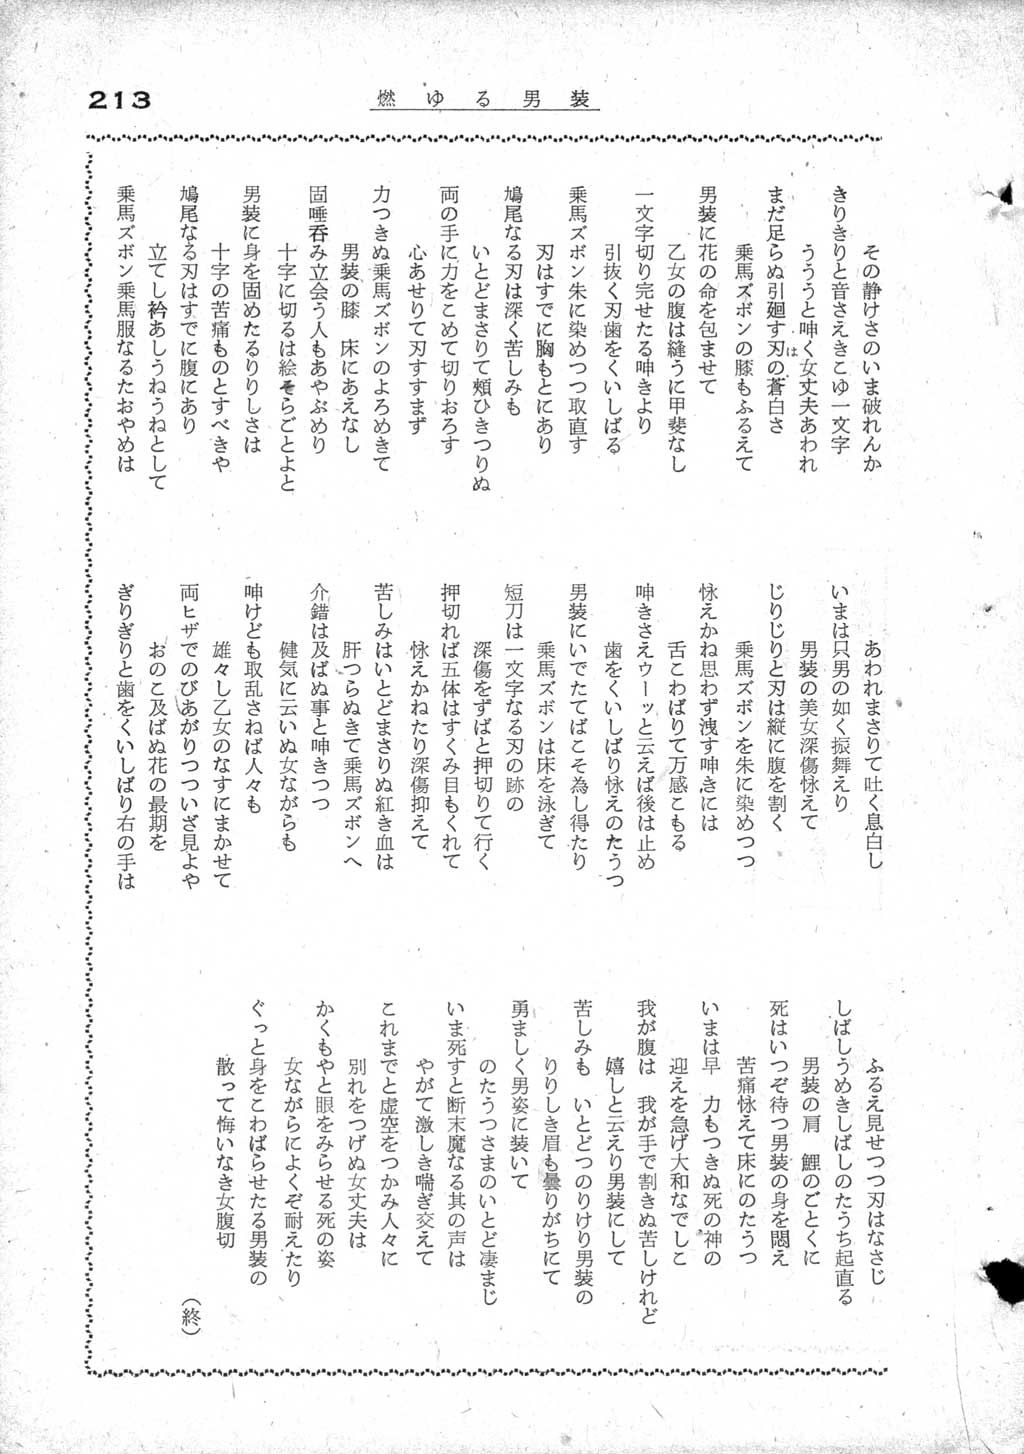 213
燃ゆる男装
その静けさのいま破れんか
きりきりと音さえきこゆ一文字
うううと呻く女丈夫あわれ
まだ足らぬ引廻す刃の蒼白さ
は
乗馬ズボンの膝もふるえて
男装に花の命を包ませて
乙女の腹は縫うに甲斐なし
一文字切り完せたる呻きより
引抜く刃歯をくいしばる
乗馬ズボン朱に染めつつ取直す
刃はすでに胸もとにあり
鳩尾なる刃は深く苦しみも
いとどまさりて頰ひきつりぬ
両の手に力をこめて切りおろす
心あせりて刃すすまず
力つきぬ乗馬ズボンのよろめきて
男装の膝 床にあえなし
固唾呑み立会う人もあやぶめり
十字に切るは絵そらごとよと
男装に身を固めたるりりしさは
十字の苦痛ものとすべきや
鳩尾なる刃はすでに腹にあり
立てし衿あしうねうねとして
乗馬ズボン乗馬服なるたおやめは
あわれまさりて吐く息白し
いまは只男の如く振舞えり
男装の美女深傷怺えて
じりじりと刃は縦に腹を割く
乗馬ズボンを朱に染めつつ
怺えかね思わず洩す呻きには
舌こわばりて万感こもる
呻きさえウーッと云えば後は止め
歯をくいしばり怺えのたうつ
男装にいでたてばこそ為し得たり
乗馬ズボンは床を泳ぎて
短刀は一文字なる刃の跡の
深傷をずばと押切りて行く
押切れば五体はすくみ目もくれて
怺えかねたり深傷抑えて
苦しみはいとどまさりぬ紅き血は
肝つらぬきて乗馬ズボンへ
介錯は及ばぬ事と呻きつつ
健気に云いぬ女ながらも
呻けども取乱さねば人々も
雄々し乙女のなすにまかせて
両ヒザでのびあがりつついざ見よや
おのこ及ばぬ花の最期を
ぎりぎりと歯をくいしばり右の手は
ふるえ見せつつ刃はなさじ
しばしうめきしばしのたうち起直る
男装の肩 鯉のごとくに
死はいつぞ待つ男装の身を悶え
苦痛怺えて床にのたうつ
いまは早 力もつきぬ死の神の
迎えを急げ大和なでしこ
我が腹は 我が手で割きぬ苦しけれど
嬉しと云えり男装にして
苦しみも いとどつのりけり男装の
りりしき眉も曇りがちにて
勇ましく男姿に装いて
のたうつさまのいとど凄まじ
いま死すと断末魔なる其の声は
やがて激しき喘ぎ交えて
これまでと虚空をつかみ人々に
別れをつげぬ女丈夫は
かくもやと眼をみらせる死の姿
女ながらによくぞ耐えたり
ぐっと身をこわばらせたる男装の
散って悔いなき女腹切
(終)